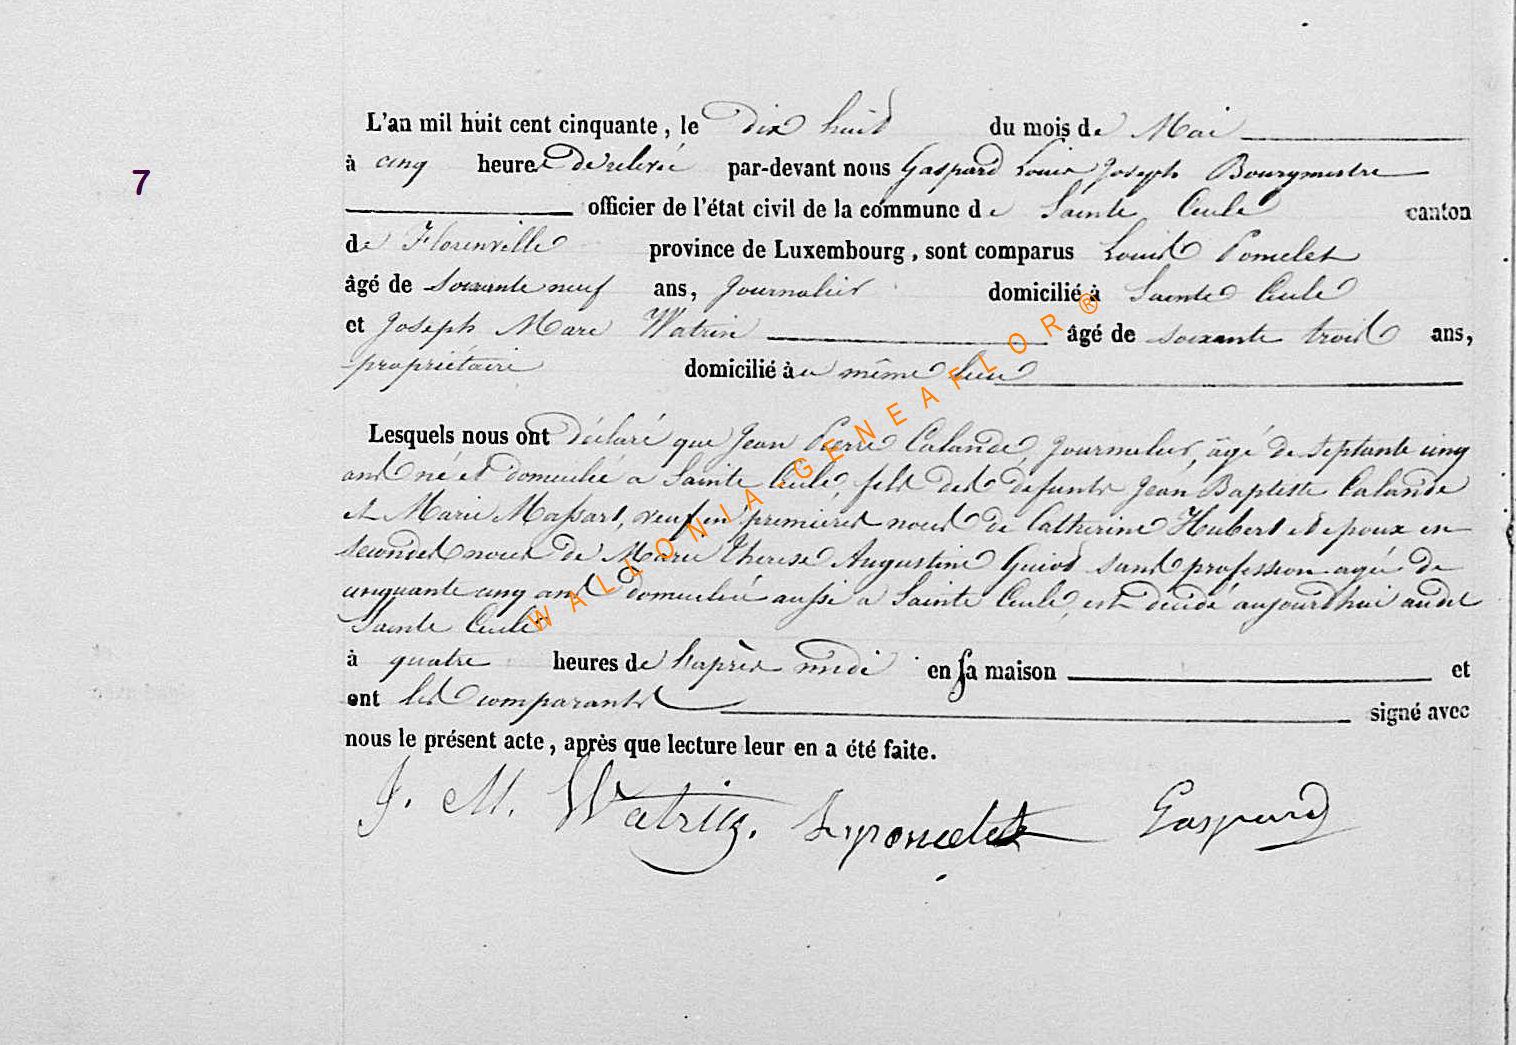 L'an mil huit cent cinquante, le dix huit du mois de Mai
7
à cinq heures de relevée par-devant nous Gaspard Louis Joseph Bourgmestre
officier de l'état civil de la commune de Sainte Cecile canton
de Florenville province de Luxembourg, sont comparus Louis Poncelet
âgé de Soixante neuf ans, Journalier domicilié à Sainte Cecile
et Joseph Marc Watrin âgé de soixante trois ans,
propriétaire domicilié à ce même lieu
Lesquels nous ont déclaré que Jean Pierre Calande, Journalier, âgé de Septante cinq
ans né et domicilié a Sainte Cecile, fils des défunts Jean Baptiste Calande
et Marie Massart, veuf en premieres noces de Catherine Hubert et epoux en
secondes noces de Marie Therese Augustine Guiot sans profession agée de
cinquante cinq ans domiciliée aussi a Sainte Cecile, est décédé aujourd'hui audit
Sainte Cecile
à quatre heures de l'après midi en sa maison et
ont les comparants signé avec
nous le présent acte, après que lecture leur en a été faite.
J. M. Watrin. L poncelet Gaspard
WALLONIA-GENEAFLOR®